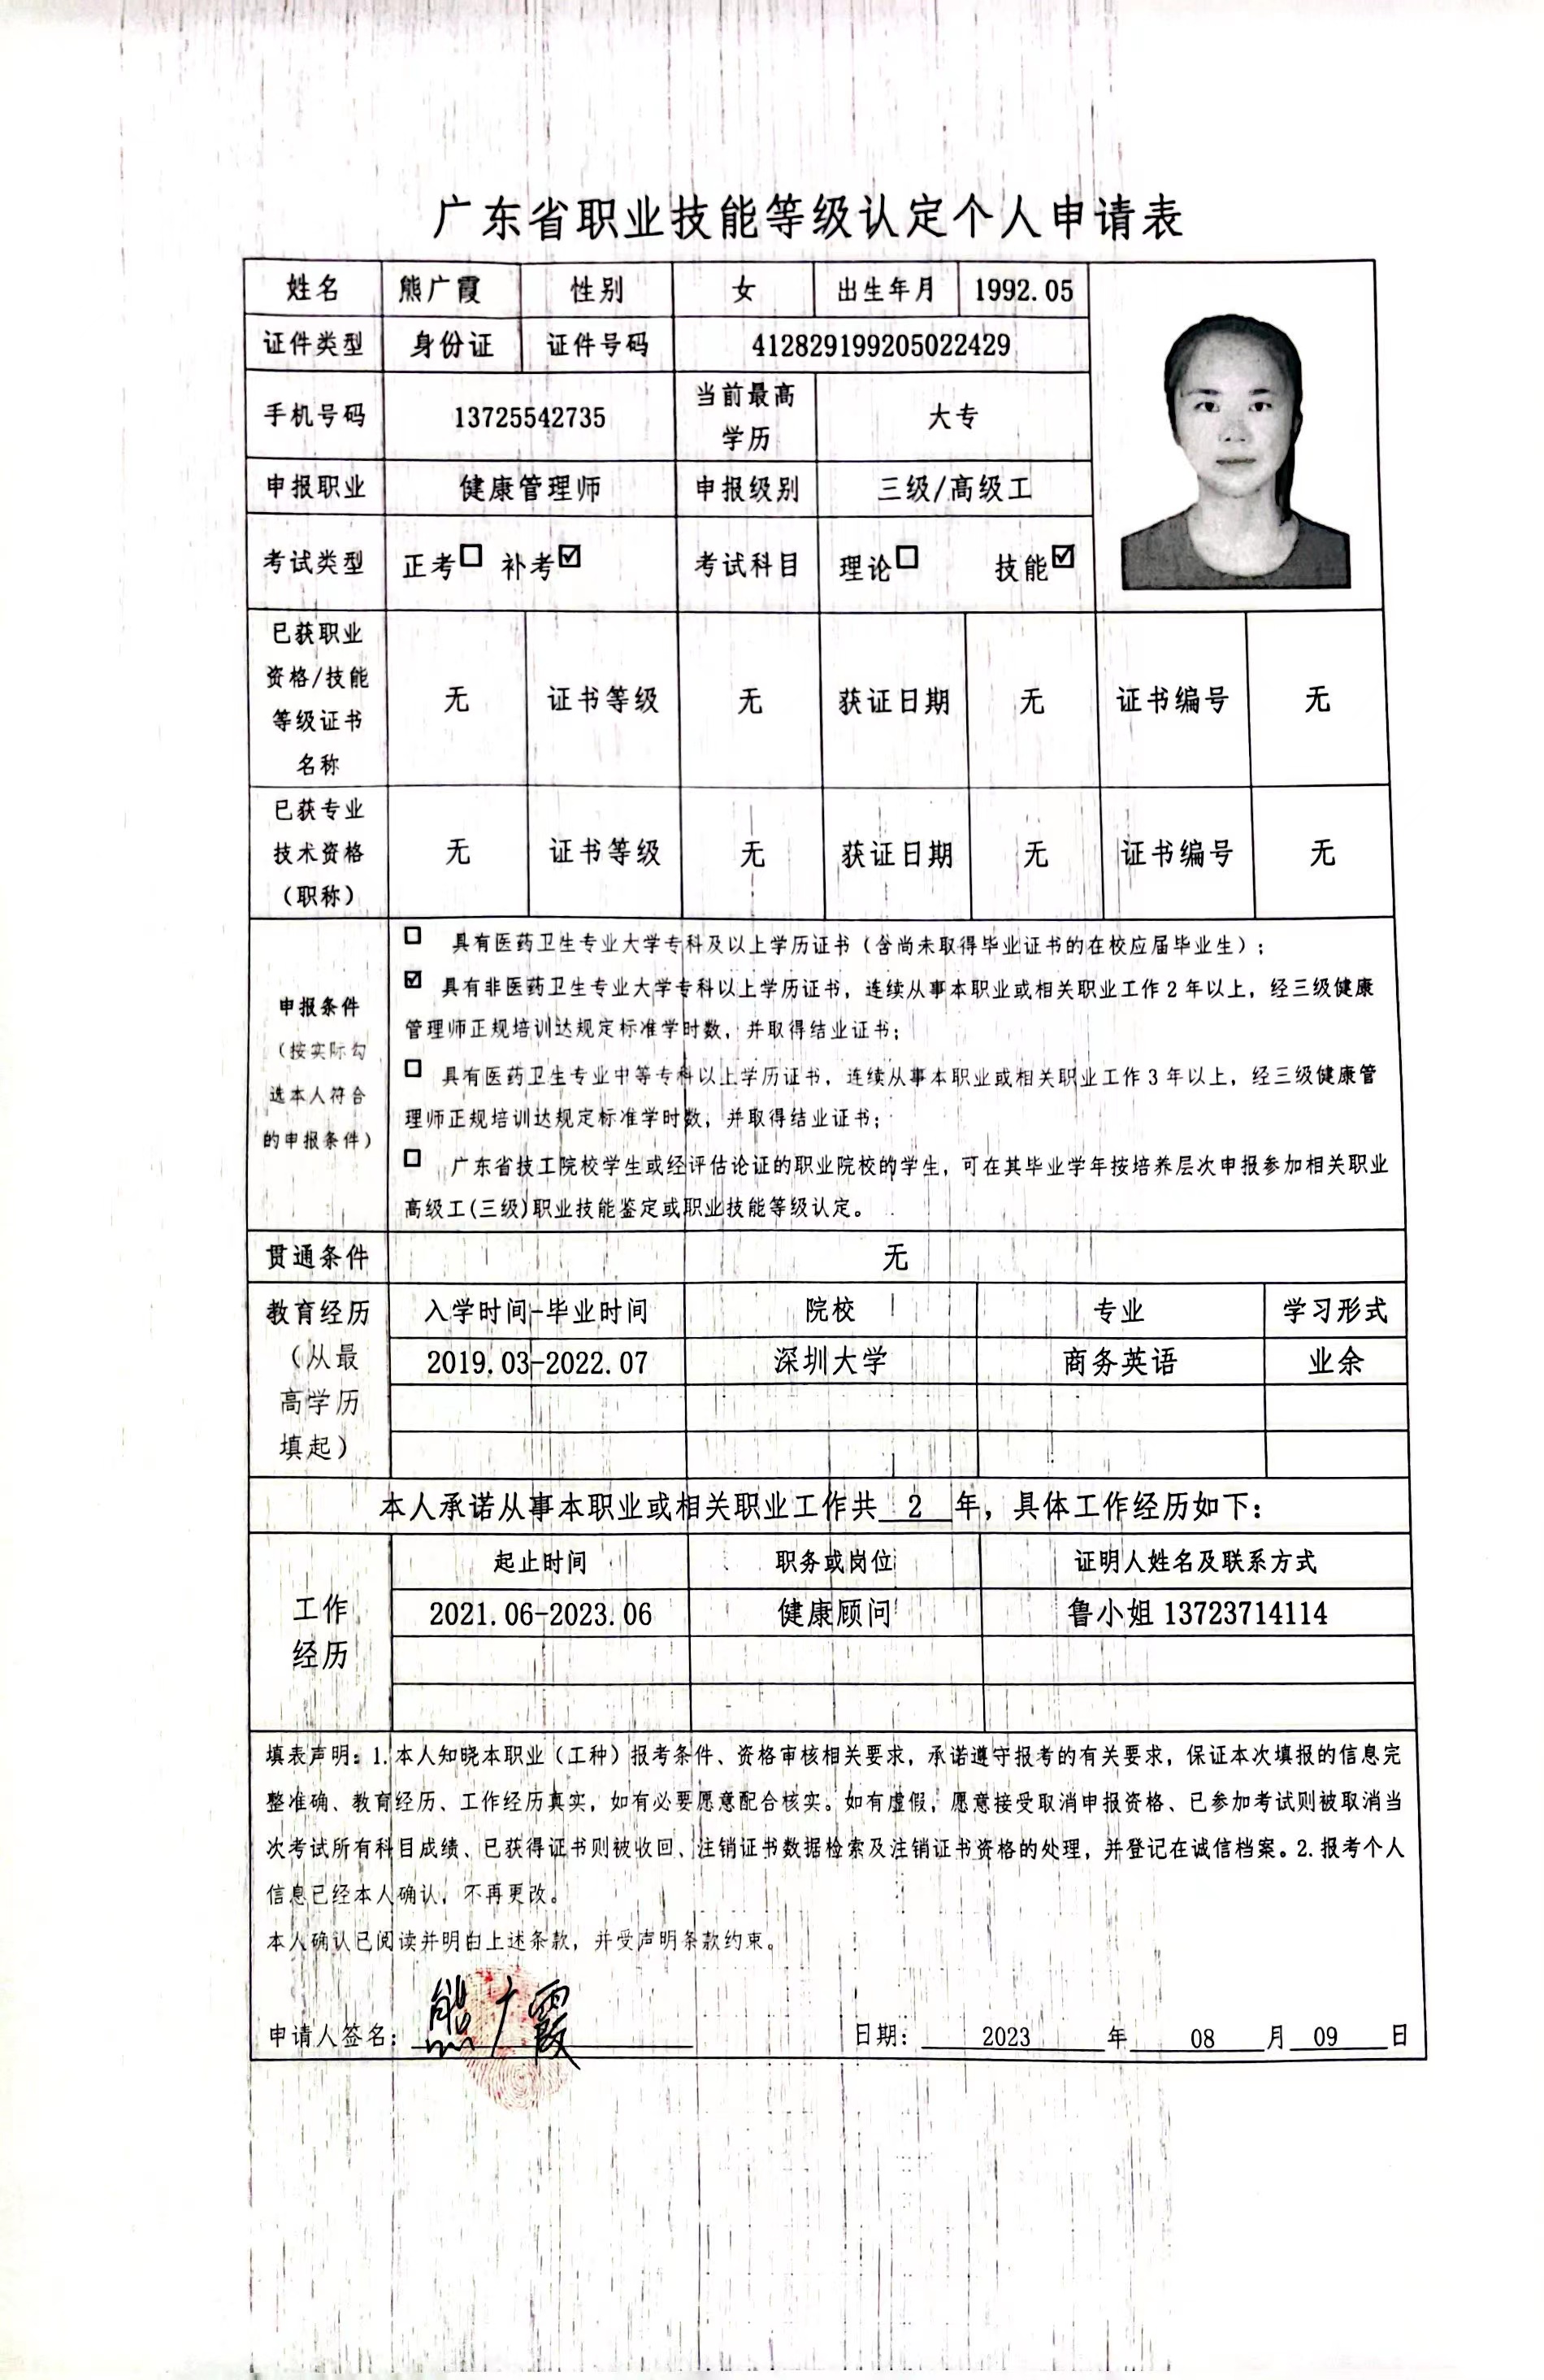 广东省职业技能等级认定个人申请表
姓名 熊广霞 性别 女 出生年月 1992.05
证件类型 身份证 证件号码 412829199205022429
手机号码 13725542735 当前最高学历 大专
申报职业 健康管理师 申报级别 三级/高级工
考试类型 正考☐ 补考☑ 考试科目 理论☐ 技能☑
已获职业资格/技能等级证书名称 无 证书等级 无 获证日期 无 证书编号 无
已获专业技术资格（职称） 无 证书等级 无 获证日期 无 证书编号 无
申报条件
（按实际勾
选本人符合
的申报条件）
☐ 具有医药卫生专业大学专科及以上学历证书（含尚未取得毕业证书的在校应届毕业生）；
☑ 具有非医药卫生专业大学专科以上学历证书，连续从事本职业或相关职业工作2年以上，经三级健康
管理师正规培训达规定标准学时数，并取得结业证书；
☐ 具有医药卫生专业中等专科以上学历证书，连续从事本职业或相关职业工作3年以上，经三级健康管
理师正规培训达规定标准学时数，并取得结业证书；
☐ 广东省技工院校学生或经评估论证的职业院校的学生，可在其毕业学年按培养层次申报参加相关职业
高级工(三级)职业技能鉴定或职业技能等级认定。
贯通条件 无
教育经历
（从最
高学历
填起）
入学时间-毕业时间 院校 专业 学习形式
2019.03-2022.07 深圳大学 商务英语 业余
本人承诺从事本职业或相关职业工作共 2 年，具体工作经历如下：
工作
经历
起止时间 职务或岗位 证明人姓名及联系方式
2021.06-2023.06 健康顾问 鲁小姐 13723714114
填表声明：1.本人知晓本职业（工种）报考条件、资格审核相关要求，承诺遵守报考的有关要求，保证本次填报的信息完
整准确、教育经历、工作经历真实，如有必要愿意配合核实。如有虚假，愿意接受取消申报资格、已参加考试则被取消当
次考试所有科目成绩、已获得证书则被收回、注销证书数据检索及注销证书资格的处理，并登记在诚信档案。2.报考个人
信息已经本人确认，不再更改。
本人确认已阅读并明白上述条款，并受声明条款约束。
申请人签名：熊广霞 日期：2023 年 08 月 09 日